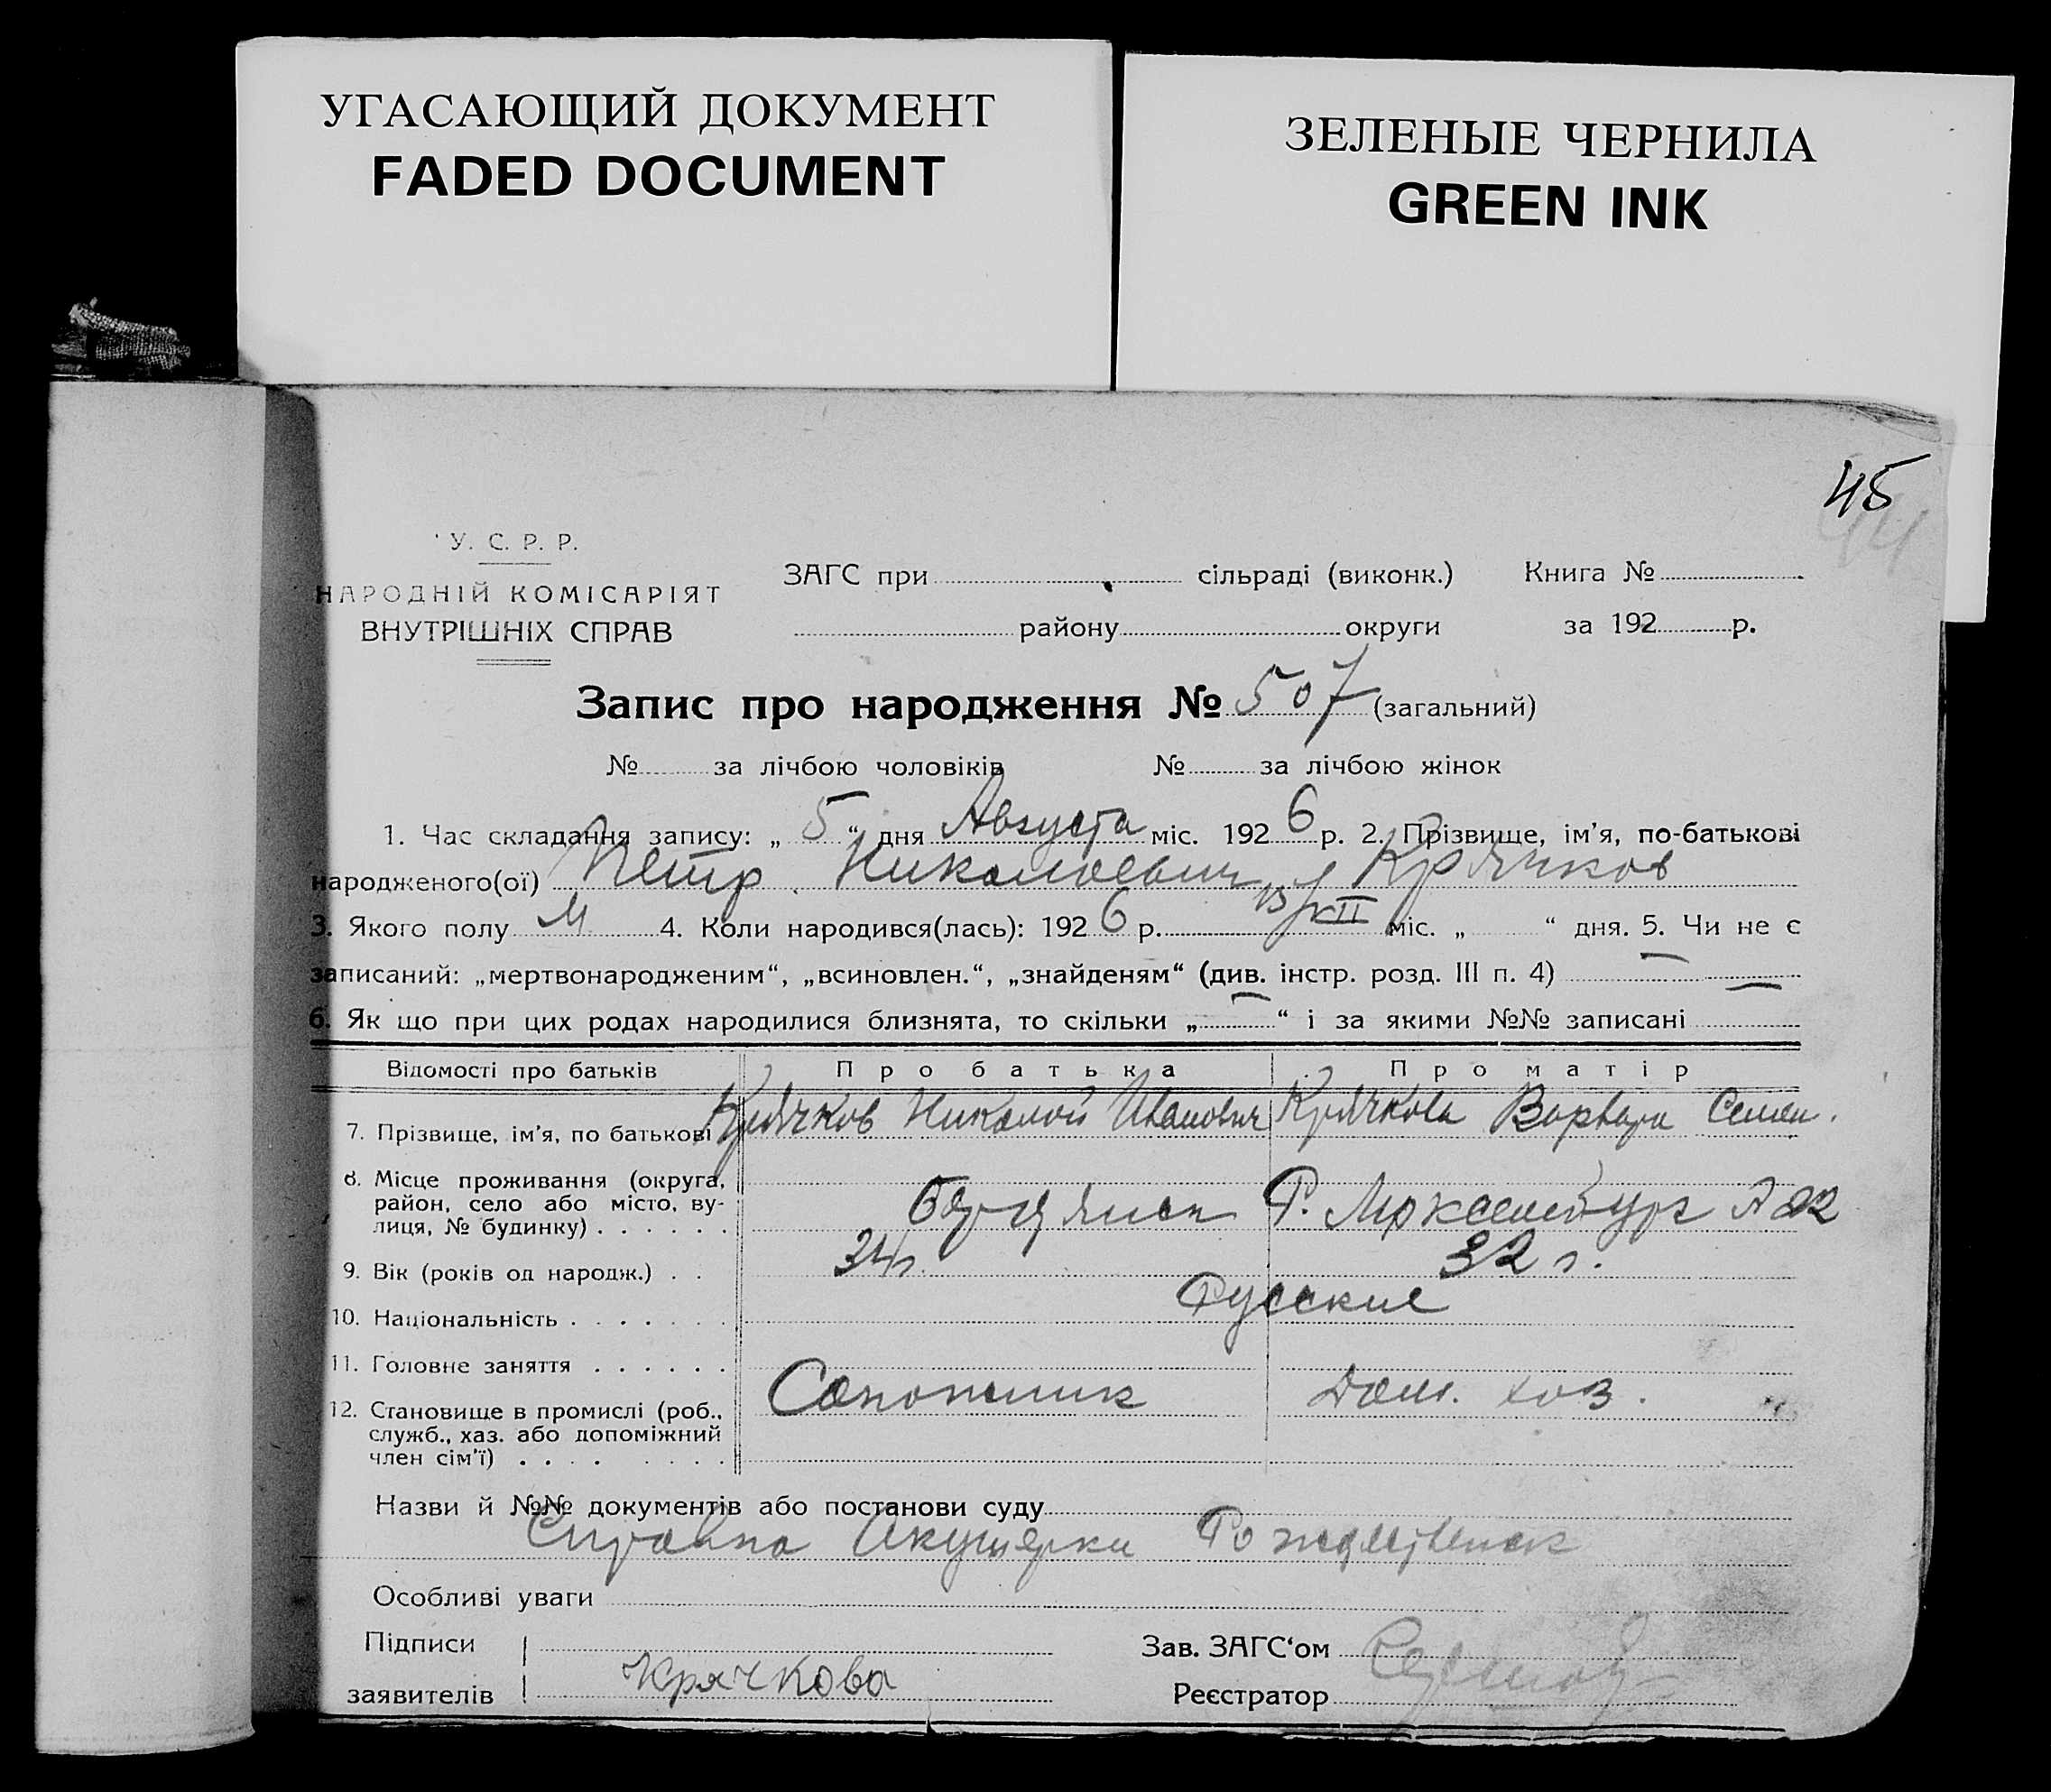 УГАСАЮЩИЙ ДОКУМЕНТ
FADED DOCUMENT
ЗЕЛЕНЫЕ ЧЕРНИЛА
GREEN INK
45
44
У. С. Р. Р.
НАРОДНІЙ КОМІСАРІЯТ
ВНУТРІШНІХ СПРАВ
ЗАГС при сільраді (виконк.) Книга №
району округи за 192 р.
Запис про народження № 507 (загальний)
№ за лічбою чоловіків № за лічбою жінок
1. Час складання запису: „ 5 “ дня Августа міс. 1926 р. 2. Прізвище, ім’я, по-батькові
народженого(ої) Петр Николаевич Крячков
3. Якого полу М 4. Коли народився(лась): 1926 р. міс. „ “ дня. 5. Чи не є
записаний: „мертвонародженим“, „всиновлен.“, „знайденям“ (див. інстр. розд. III п. 4) —
6. Як що при цих родах народилися близнята, то скільки „ — “ і за якими №№ записані —
Відомості про батьків Про батька Про матір
7. Прізвище, ім’я, по батькові Крячков Николай Иванович Крячкова Варвара Семен.
8. Місце проживання (округа,
район, село або місто, ву-
лиця, № будинку) . . . . . . Бердянск Р. Люксембург 22
9. Вік (років од народж.) . . 34 г. 32 г.
10. Національність . . . . . . . Русские
11. Головне заняття . . . . . .
Сапожник Дом. хоз.
12. Становище в промислі (роб.,
служб., хаз. або допоміжний
член сім’ї) . . . . . . . .
Назви й №№ документів або постанови суду
Справка Акушерки Рождественск
Особливі уваги
Підписи Зав. ЗАГС‘ом
заявителів Крячкова Реєстратор